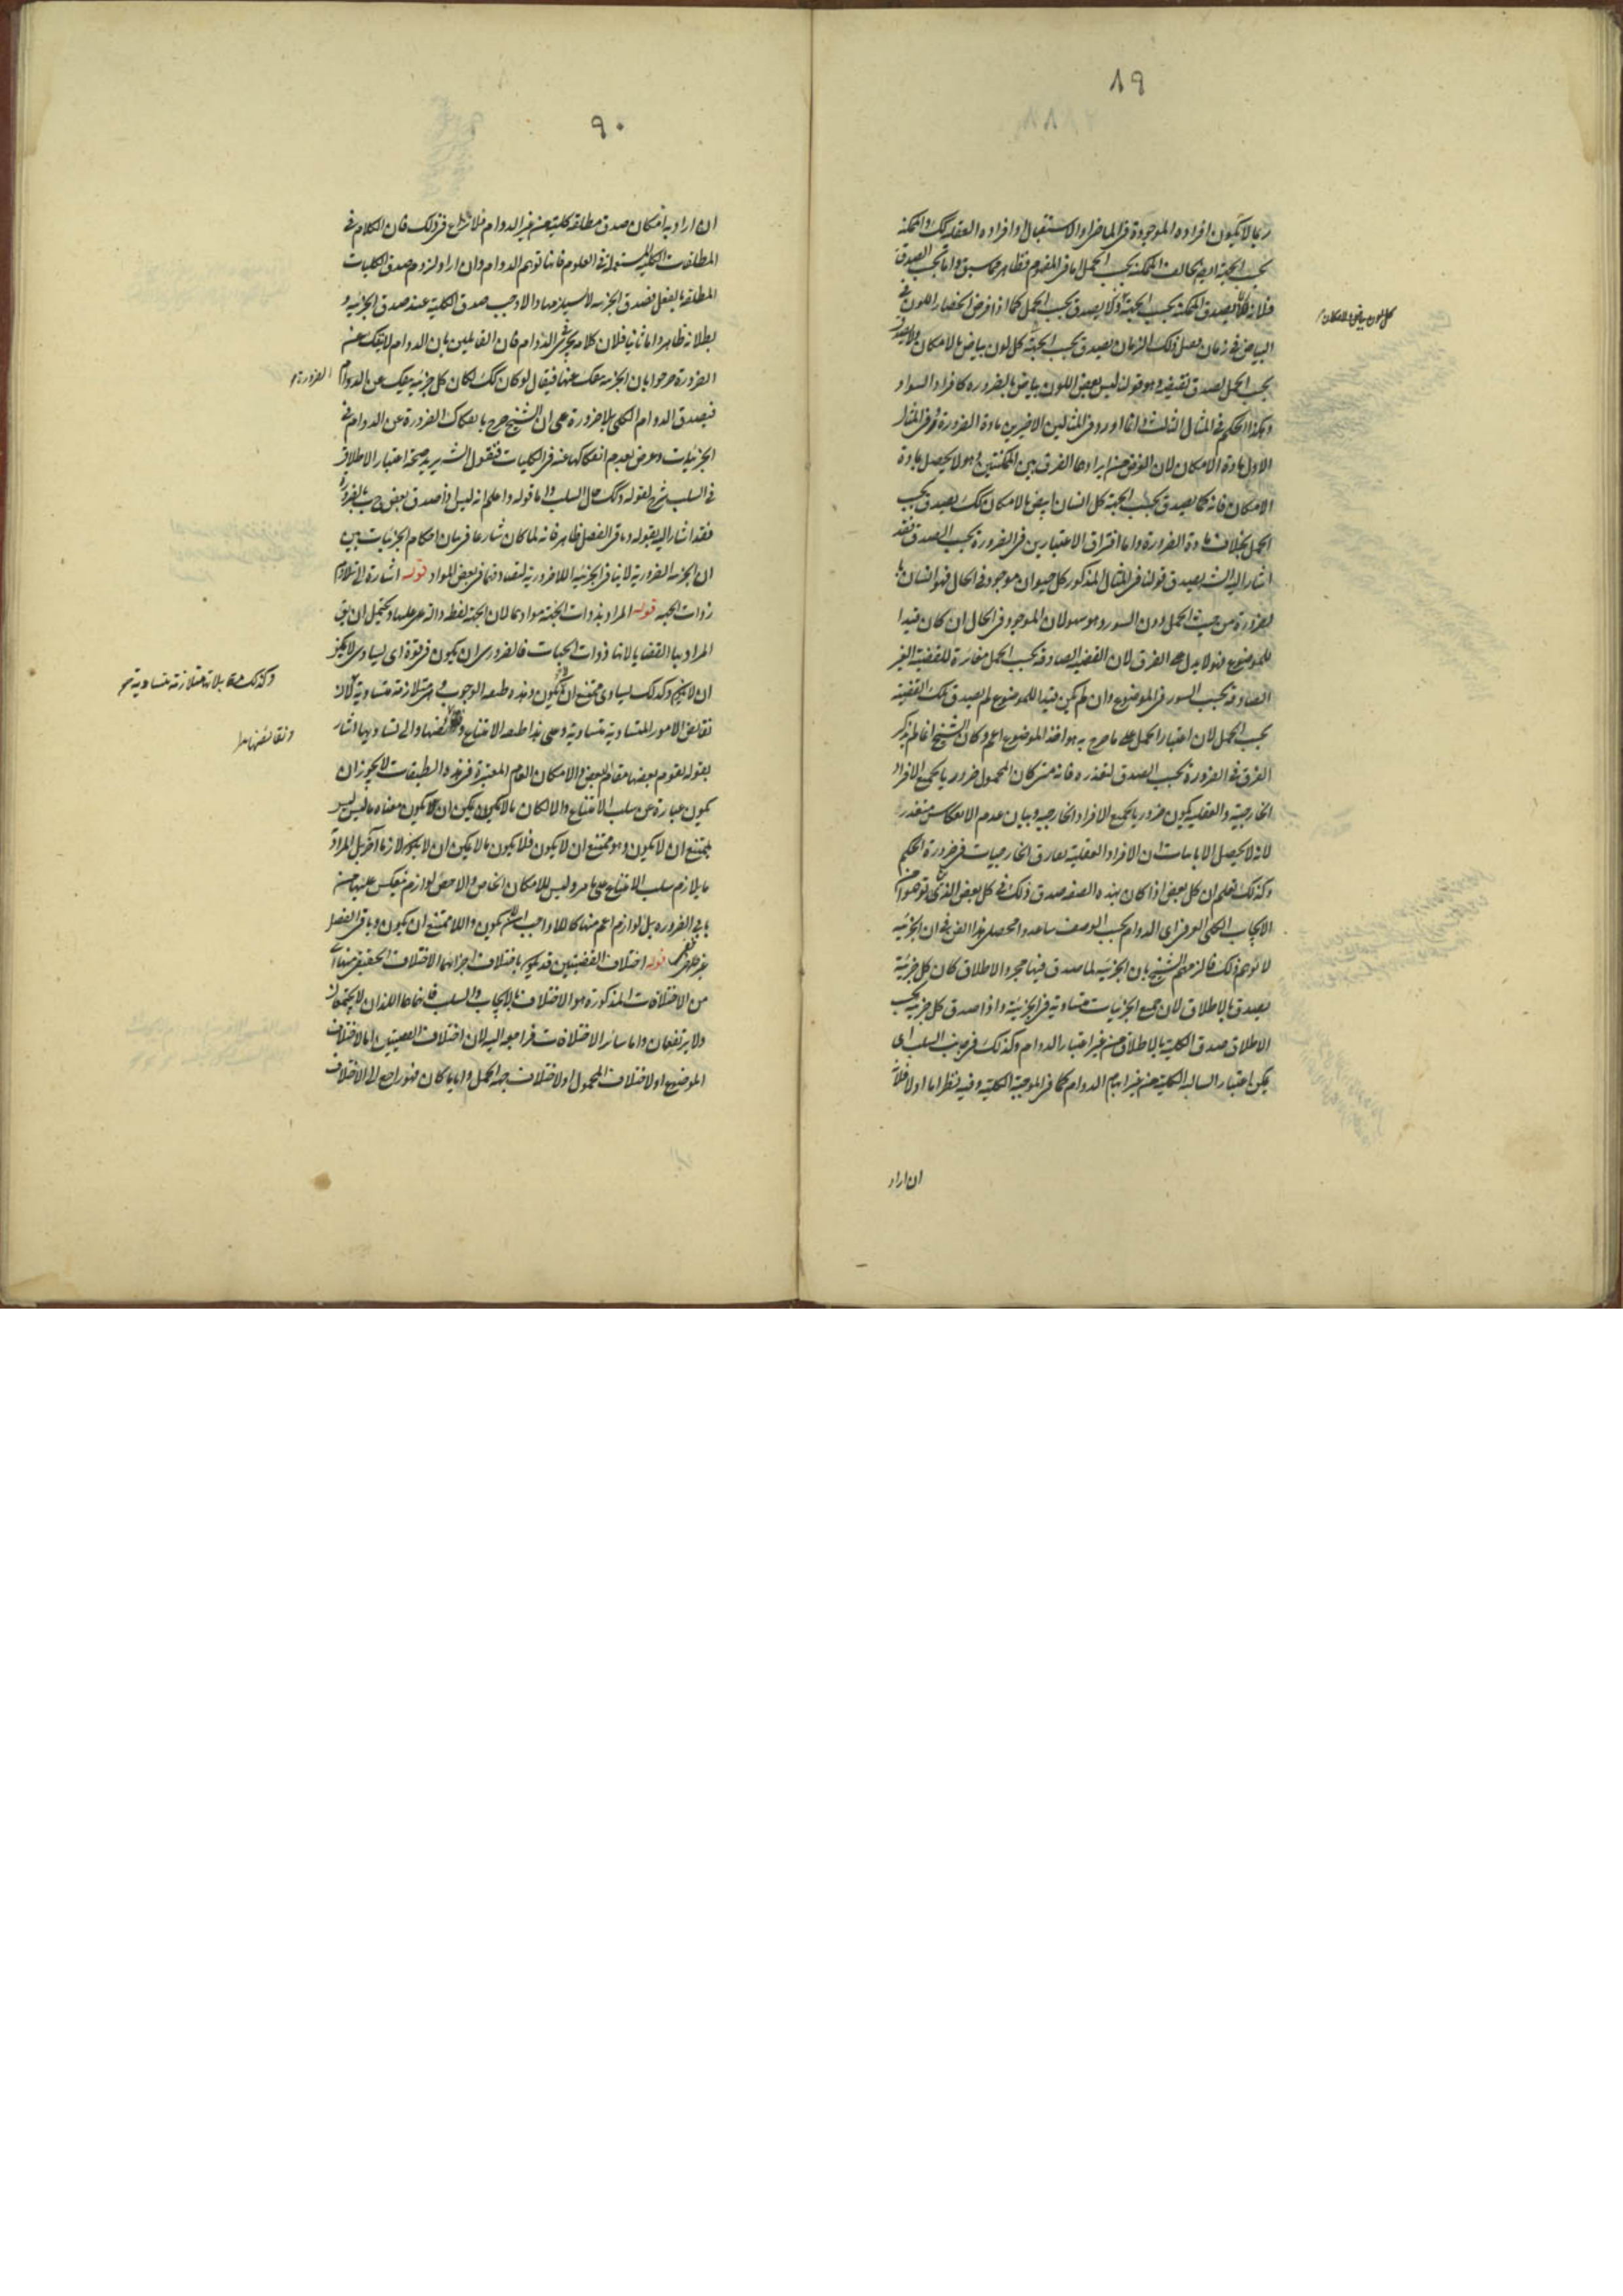 ٨٩
ربما لا يكون افراده الموجودة في الماضي او الاستقبال او افراده العقلية كك والممكنة
بحسب الجهة ايضا يخالف الممكنة بحسب الحمل اما في المفهوم فظاهر مما سبق واما بحسب الصدق
فلانه كلما يصدق الممكنة بحسب الجهة ولا يصدق بحسب الحمل كما اذا فرض انحصار اللون في
البياض في زمان ففي ذلك الزمان يصدق بحسب الجهة كل لون بياض بالامكان ولا يصدق
بحسب الحمل لصدق نقيضه وهو قولنا ليس بعض اللون بياض بالضرورة كافراد السواد
وهكذا الحكم في المثال الثالث وانما اورد في المثالين الاخيرين مادة الضرورة وفي المثال
الاول مادة الامكان لان الغرض من ايرادها الفرق بين الممكنتين وهو لا يحصل بمادة
الامكان فانه كما يصدق بحسب الجهة كل انسان ابيض بالامكان كك يصدق بحسب
الحمل بخلاف مادة الضرورة واما افتراق الاعتبارين في الضرورة بحسب الصدق فقد
اشار اليه الش بصدق قولنا في المثال المذكور كل حيوان موجود في الحال فهو انسان
بضرورة من حيث الحمل دون السور وهو سهو لان الموجود في الحال ان كان قيدا
للموضوع فهو لا يدل على الفرق لان القضية الصادقة بحسب الحمل مغايرة للقضية الغير
الصادقة بحسب السور في الموضوع وان لم يكن قيدا للموضوع لم يصدق تلك القضية
بحسب الحمل لان اعتبار الحمل على ما صرح به هو اخذ الموضوع اعم وكان الشيخ انما لم يذكر
الفرق في الضرورة بحسب الصدق لتعذره فانه متى كان المحمول ضروريا لجميع الافراد
الخارجية والعقلية يكون ضروريا لجميع الافراد الخارجية وبيان عدم الانعكاس متعذر
لانه لا يحصل الا باثبات ان الافراد العقلية تفارق الخارجيات في ضرورة الحكم
وكذلك تعلم ان كل بعض اذا كان بهذه الصفة صدق ذلك في كل بعض الذي توهموا ان
الايجاب الكلي العرفي اي الدوام بحسب الوصف ساعدوا محصل هذا الفرق ان الجزئية
لا توهم ذلك فالزمهم الشيخ بان الجزئية لما صدق فيها مجرد الاطلاق كان كل جزئية
يصدق بالاطلاق لان جميع الجزئيات متساوية في الجزئية واذا صدق كل جزئية بحسب
الاطلاق صدق الكلية بالاطلاق من غير اعتبار الدوام وكذلك في جانب السلب اي
يمكن اعتبار السالبة الكلية من غير ايهام الدوام كما في الموجبة الكلية وفيه نظر اما اولا فلأنه
ان اراد
كل لون بياض بالامكان
٩٠
ان اراد به امكان صدق مطلقة كلية من غير الدوام فلا نزاع في ذلك فان الكلام في
المطلقات الكلية المستعملة في العلوم فانها توهم الدوام وان اراد لزوم صدق الكليات
المطلقة بالفعل فصدق الجزئية لا يستلزمها والا وجب صدق الكلية عند صدق الجزئية و
بطلانه ظاهر واما ثانيا فلان كلامه يجري في الدوام فان القائلين بان الدوام لا ينفك عن
الضرورة صرحوا بان الجزئية ينفك عنها فيقال لو كان كك لكان كل جزئية ينفك عن الدوام
الضرورة
فيصدق الدوام الكلي بلا ضرورة على ان الشيخ صرح بانفكاك الضرورة عن الدوام في
الجزئيات وعرض بعدم انفكاكها عنه في الكليات فنقول الش يريد صحة اعتبار الاطلاق
في السلب شرح لقوله وكك حال السلب واما قوله واعلم انه ليس اذا صدق بعض ج ب بالضرورة
فقد اشار اليه بقوله وباقي الفصل ظاهر فانه لما كان شارعا في بيان احكام الجزئيات بين
ان الجزئية الضرورية لا ينافي الجزئية اللاضرورية لتصادقهما في بعض المواد قوله اشارة الى تلازم
ذوات الجهة قوله المراد بذوات الجهة موادها لان الجهة لفظة دالة عليها ويحتمل ان يق
المراد بها القضايا لانها ذوات الجهات فالضروري ان يكون في قوة اي يساوي لا يمكن
ان لا يكون وكذلك يساوي ممتنع ان لا يكون وهذه طبقة الوجوب وهي متلازمة متساوية لان
وكذلك متلازمة متساوية
نقائض الامور المتساوية متساوية وعلى هذا طبقة الامتناع ونقائضها والى تساويها اشار
ونقائضها
بقوله يقوم بعضها مقام البعض والامكان العام المعتبرة في هذه الطبقات لا يجوز ان
يكون عبارة عن سلب الامتناع والا لكان ما لا يكون يمكن ان لا يكون معناه ما ليس ليس
بممتنع ان لا يكون وهو ممتنع ان لا يكون فلا يكون ما لا يمكن ان لا يكون لازما آخر بل المراد
ما يلازم سلب الامتناع على ما مر وليس للامكان الخاص والاخص لوازم ينعكس عليها من
باقي الضرورة بل لوازم اعم منها كاللا واجب ان يكون واللا ممتنع ان يكون وباقي الفصل
غني عن الشرح قوله اختلاف القضيتين قد يكون باختلاف اجزائهما الاختلاف الحقيقي منها اي
من الاختلافات المذكورة هو الاختلاف بالايجاب والسلب فانهما اللذان لا يجتمعان
ولا يرتفعان واما سائر الاختلافات فراجعة اليه لان اختلاف القضيتين اما لاختلاف
الموضوع او لاختلاف المحمول او لاختلاف جهة الحمل وايا ما كان فهو راجع الى الاختلاف